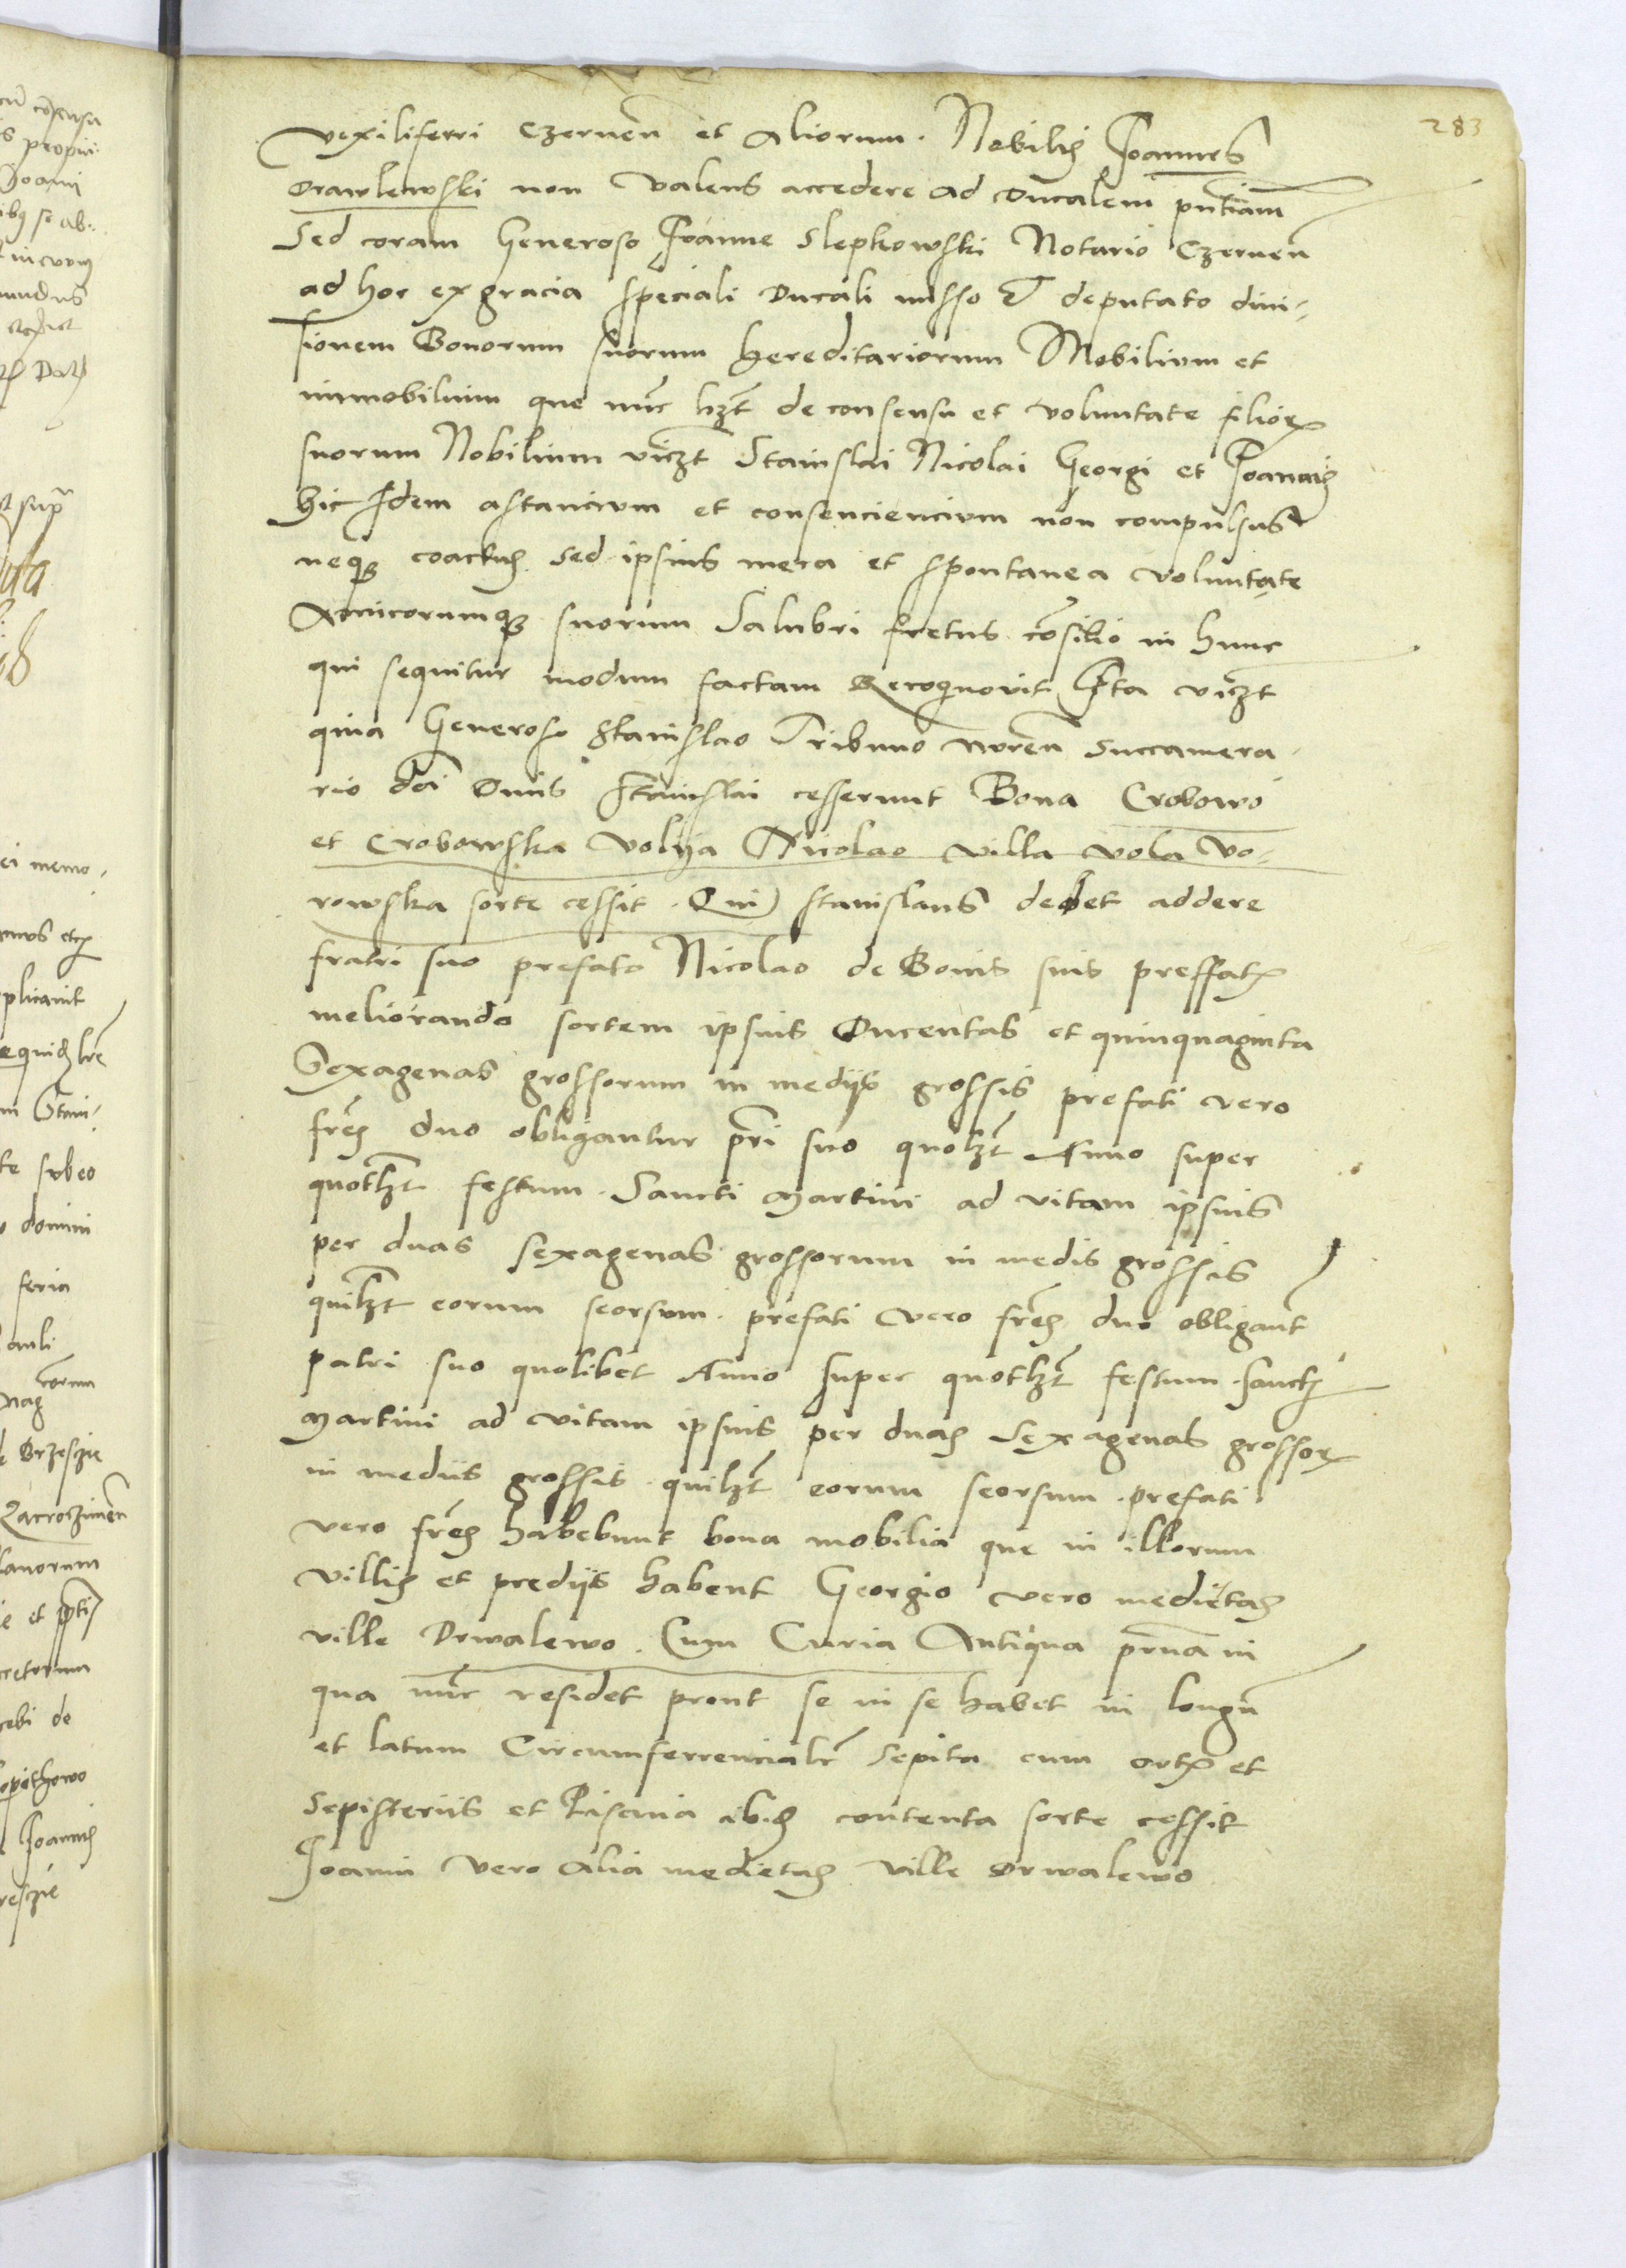 283
vexiliferri Czernen et Aliorum. Nobilis Joannes
Drawlewski non valens accedere ad Ducalem pntiam
Sed coram Generoso Joanne Slepkowski Notario Czernen
ad hoc ex gracia speciali Ducali misso & deputato divi-
sionem Bonorum suorum hereditariorum Mobilium et
immobilium que nunc hzt de consensu et voluntate filior
suorum Nobilium viczt Stanislai Nicolai Georgi et Joannis
hic Idem astancium et consenciencium non compulsus
neqz coactus sed ipsius mera et spontanea voluntate
Amicorumqz suorum Salubri fretus consilio in hunc
qui sequitur modum factam Recognovit Ita viczt
quia Generoso Stanislao Tribuno Succamera-
rio Stanislai cesserunt Bona Crobowo
et Crobowska Volya Nicolao villa Vola Vo-
rowska sorte cessit. Qui Stanislaus debet addere
fratri suo prefato Nicolao de Bonis suis preffatis
meliorando sortem ipsius Ducentas et quinquaginta
Sexagenas grossorum in mediis grossis prefati vero
fres duo obligantur pri suo quolzt Anno super
quotlzt festum Sancti Martini ad vitam ipsius
per duas sexagenas grossorum in medis grossis
quilzt eorum seorsum. prefati vero fres duo obligant
patri suo quolibet Anno super quotlzt festum Sancti
Martini ad vitam ipsius per duas Sexagenas grossor
in mediis grossis quilzt eorum seorsum. prefati
vero fres habebunt bona mobilia que in illorum
villis et prediis habent Georgio vero medietas
ville Drwalewo. Cum Curia Antiqua prna in
qua nunc residet prout se in se habet in longu
et latum Circumferencialr Sepita cum ortis et
Sepisteriis et Piscina ibid contenta sorte cessit
Joanni vero Alia medietas ville Drwalewo